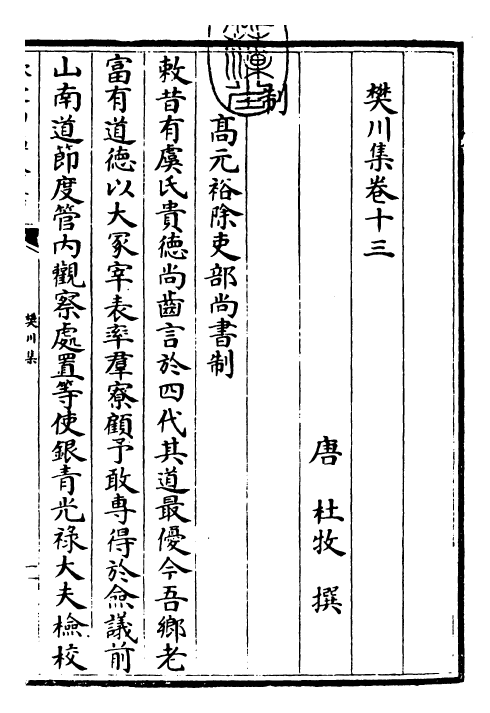 樊川集卷十三
唐 杜牧 撰
制
高元裕除吏部尚書制
敕昔有虞氏貴徳尚齒言於四代其道最優今吾鄉老
富有道徳以大冢宰表率羣寮顧予敢専得於僉議前
山南道節度管内觀察處置等使銀青光祿大夫檢校
樊川集